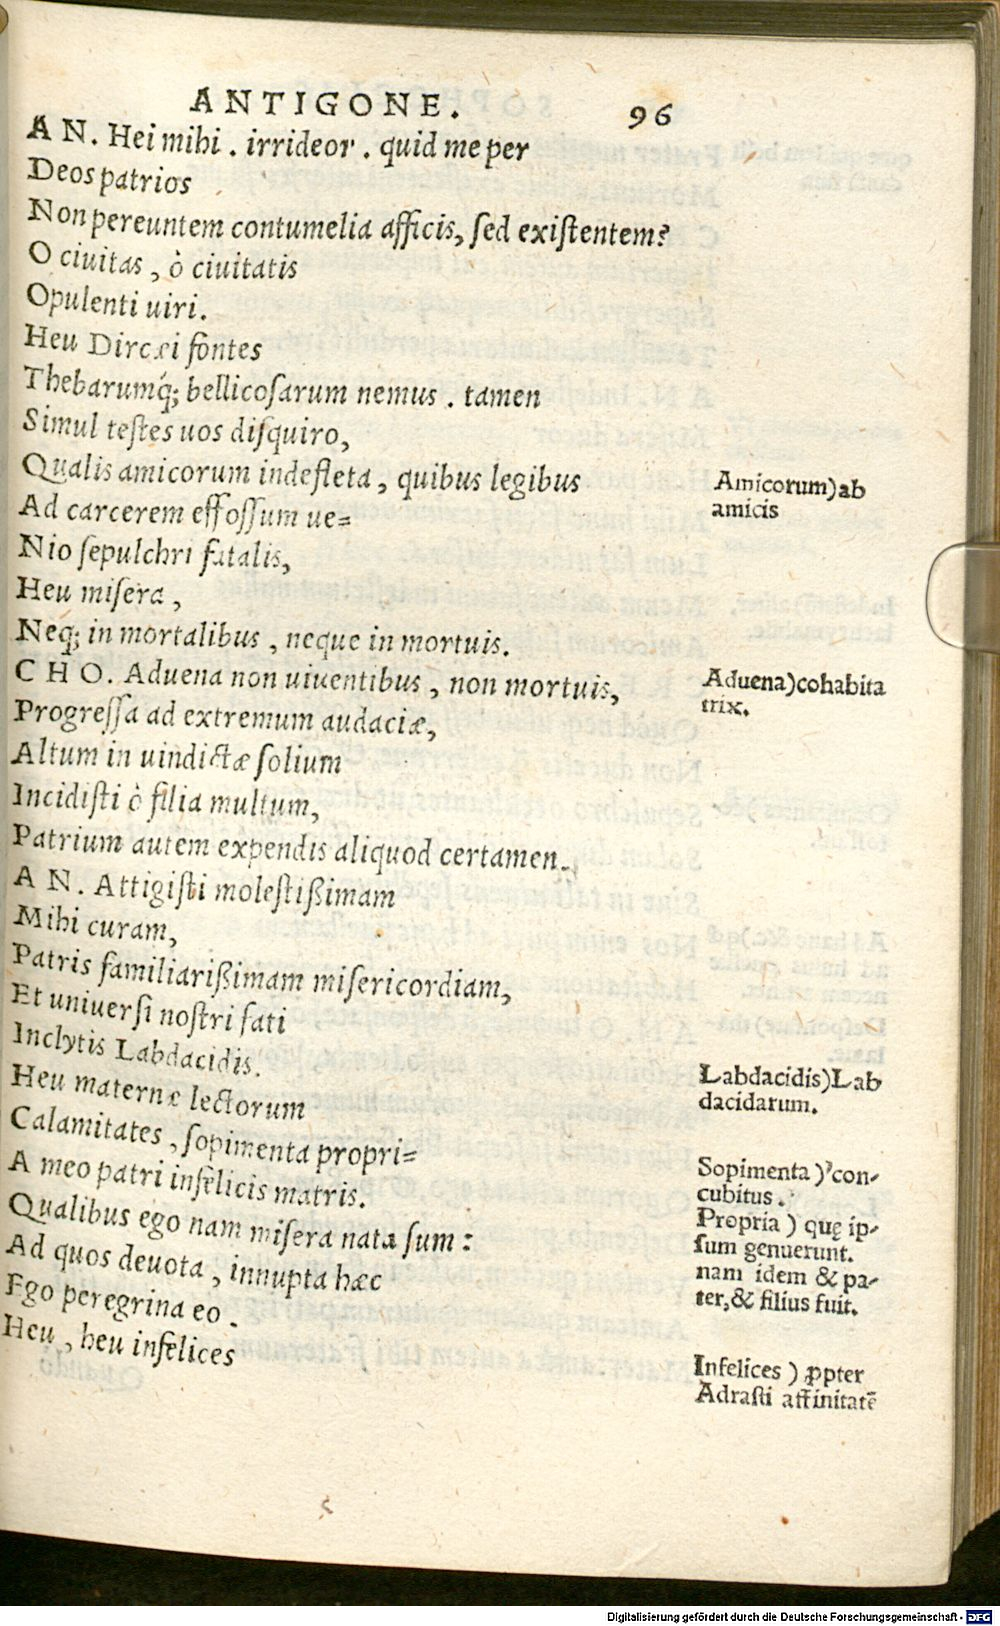 ANTIGONE. 96
A N. Hei mihi. irrideor. quid me per
Deos patrios
Non pereuntem contumelia afficis, ſed exiſtentem?
O ciuitas, ò ciuitatis
Opulenti uiri.
Heu Dircæi fontes
Thebarumq́; bellicoſarum nemus. tamen
Simul teſtes uos diſquiro,
Qualis amicorum indefleta, quibus legibus
Ad carcerem effoſſum ue=
Nio ſepulchri fatalis,
Heu miſera,
Neq; in mortalibus, neque in mortuis.
C H O. Aduena non uiuentibus, non mortuis,
Progreſſa ad extremum audaciæ,
Altum in uindictæ ſolium
Incidiſti ò filia multum,
Patrium autem expendis aliquod certamen.
A N. Attigiſti moleſtißimam
Mihi curam,
Patris familiarißimam miſericordiam,
Et uniuerſi noſtri fati
Inclytis Labdacidis.
Heu maternæ lectorum
Calamitates, ſopimenta propri=
A meo patri infelicis matris.
Qualibus ego nam miſera nata ſum:
Ad quos deuota, innupta hæc
Ego peregrina eo.
Heu, heu infelices
Amicorum)ab
amicis
Aduena)cohabita
trix.
Labdacidis)Lab
dacidarum.
Sopimenta)con-
cubitus.
Propria) quę ip-
ſum genuerunt.
nam idem & pa-
ter,& filius fuit.
Infelices) ꝓpter
Adraſti affinitatē
Digitalisierung gefördert durch die Deutsche Forschungsgemeinschaft - DFG